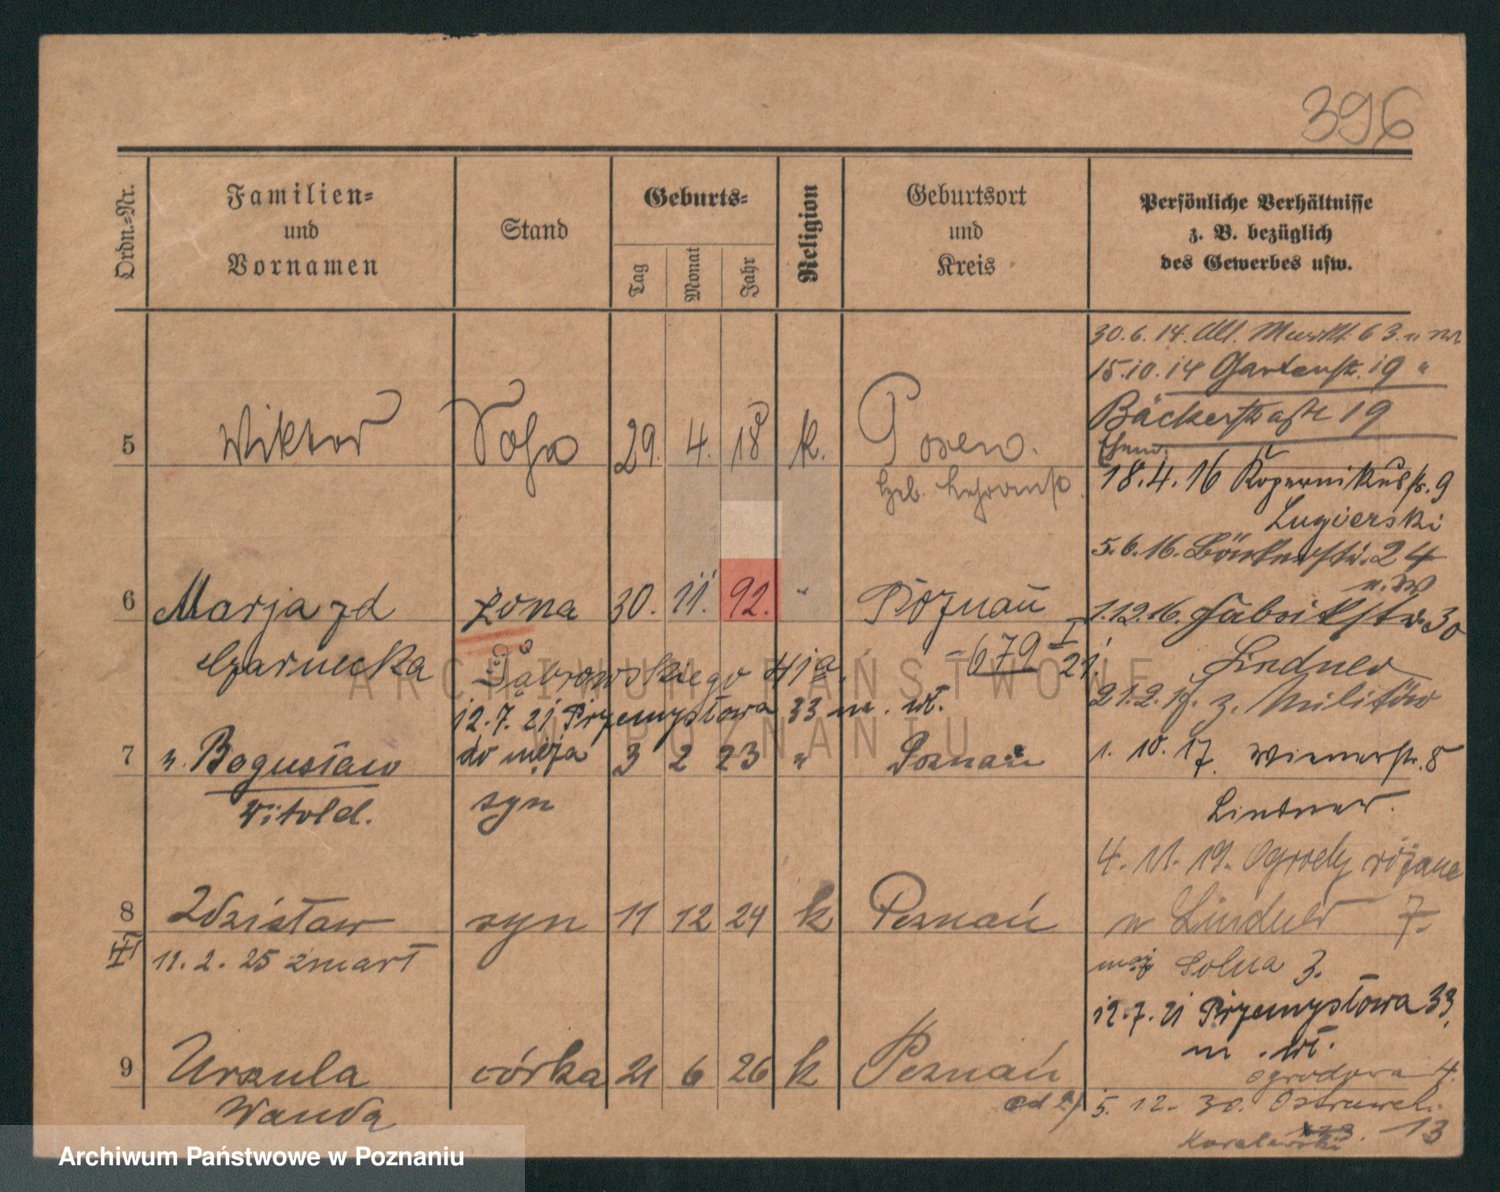 396
Ordn.=Nr.
Familien=
und
Vornamen
Stand
Geburts=
Tag
Monat
Jahr
Religion
Geburtsort
und
Kreis
Persönliche Verhältnisse
z. B. bezüglich
des Gewerbes usw.
30.6.14. Alt. Markt 63.
15.10.14 Gartenstr. 19 "
Bäckerstraße 19
5 Wiktor Sohn 29. 4. 18 k. Posen.
18.4.16 Kopernikusstr. 9
Lugierski
5.6.16. Bäckerstr. 24
6 Marja zd żona 30. 11. 92. " Poznań
1.12.16. Fabrikstr. 30
Czarnecka
Dąbrowskiego 41a.
-679 I 21.
Lindner
21.2.17. z. Militär
12.7.21 Przemysłowa 33 m. wł.
7 n. Bogusław do męża 3 2 23 " Poznań
1. 10. 17. Wienerstr. 8
Witold.
syn
Lindner.
4. 11. 19. Ogrody różane
8 Zdzisław syn 11 12 24 k Poznań
w Lindner 7.
II
11. 2. 25 zmarł
mąż Solna 3.
12.7.21 Przemysłowa 33,
m. wł.
9 Urszula córka 21 6 26 k Poznań
Ogrodowa 4.
Wanda
5. 12. 30. 13
ARCHIWUM PAŃSTWOWE
W POZNANIU
Archiwum Państwowe w Poznaniu